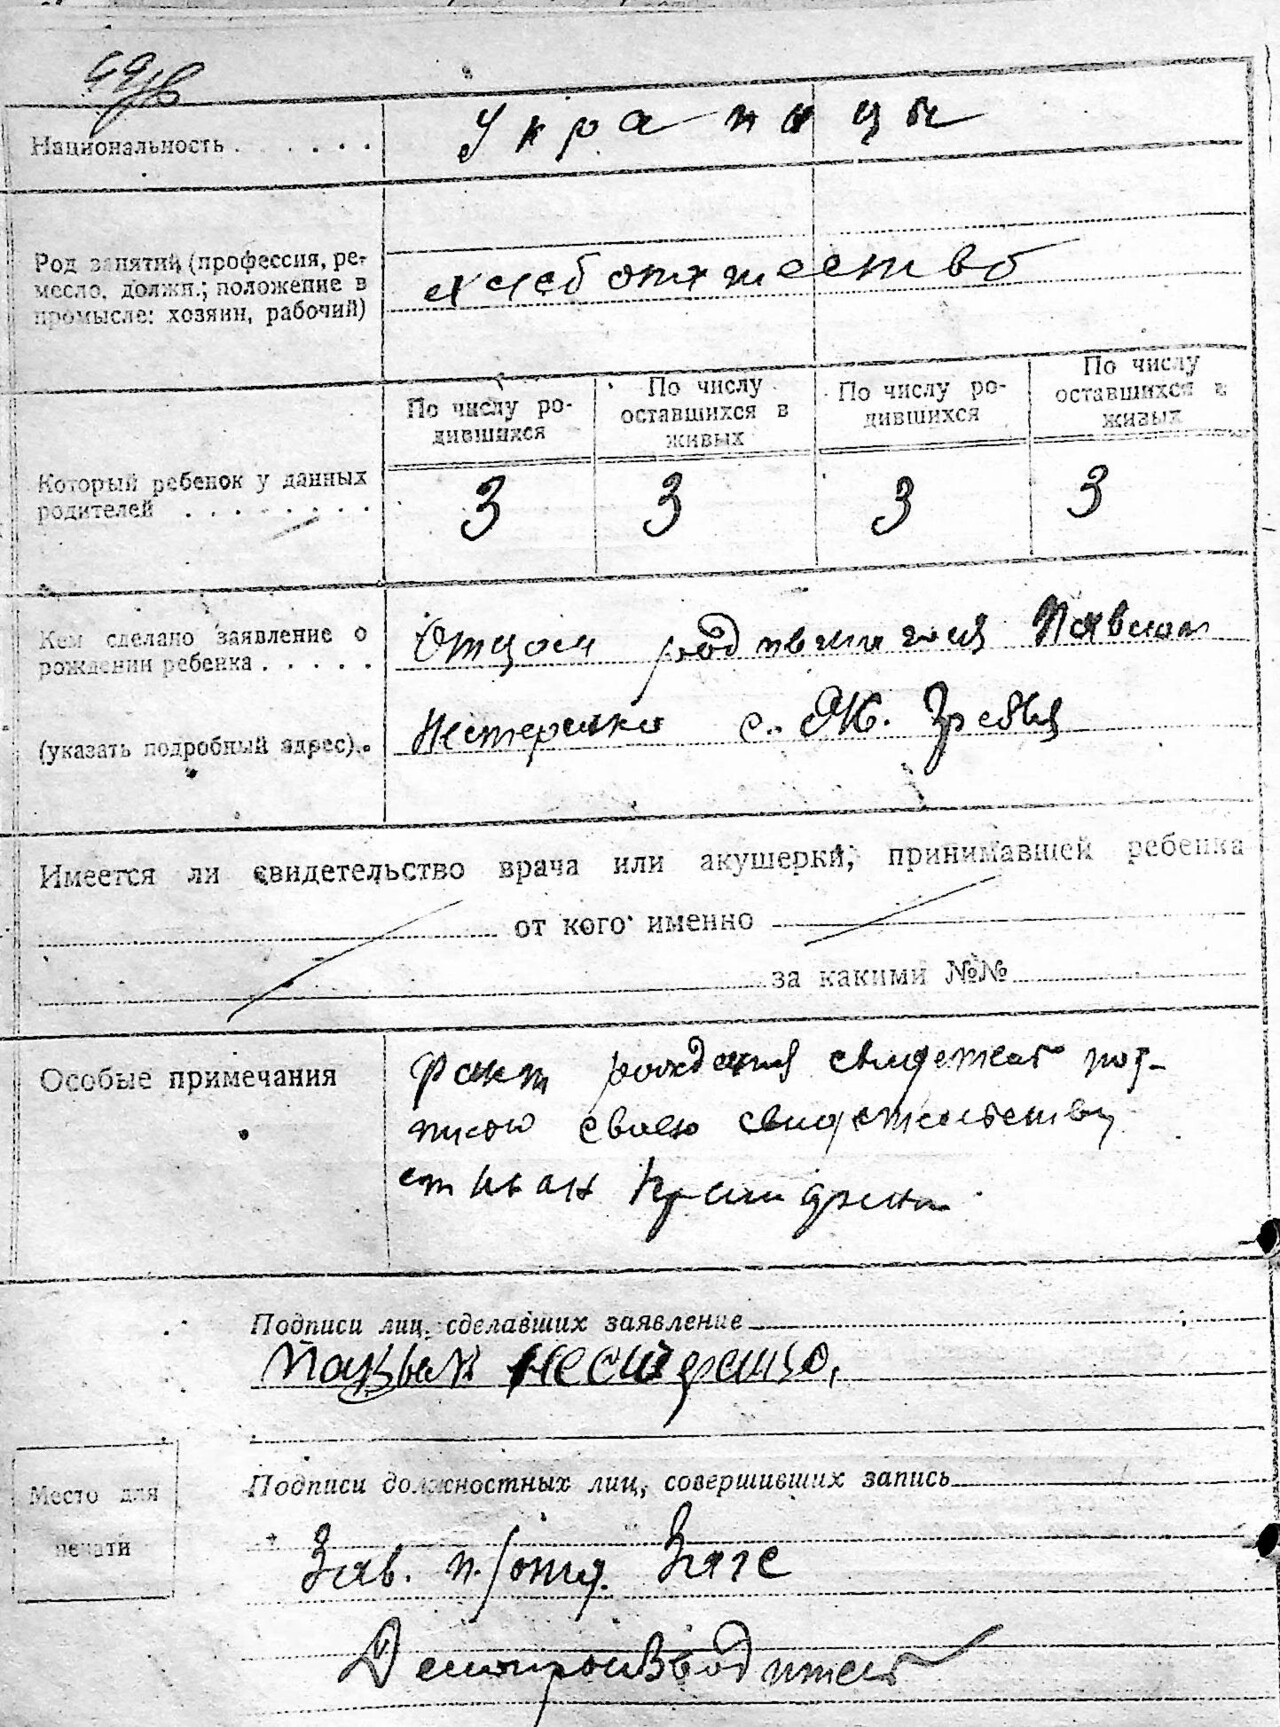 Национальность . . . . . . Украинцы
Род занятий (профессия, ре-
месло, должн.; положение в
промысле: хозяин, рабочий)
хлебопашество
По числу ро-
дившихся
По числу
оставшихся в
живых
По числу ро-
дившихся
По числу
оставшихся в
живых
Который ребенок у данных
родителей . . . . . . . .
3 3 3 3
Кем сделано заявление о
рождении ребенка . . . . .
(указать подробный адрес).
Отцом Павлом
Нестеренко с.
Имеется ли свидетельство врача или акушерки, принимавшей ребенка
от кого именно
за какими №№
Особые примечания
Факт рождения свидетель под-
писью своею
Иван
Подписи лиц, сделавших заявление
Павел Нестеренко
Подписи должностных лиц, совершивших запись
Место для
печати
Зав. Загс
Делопроизводитель